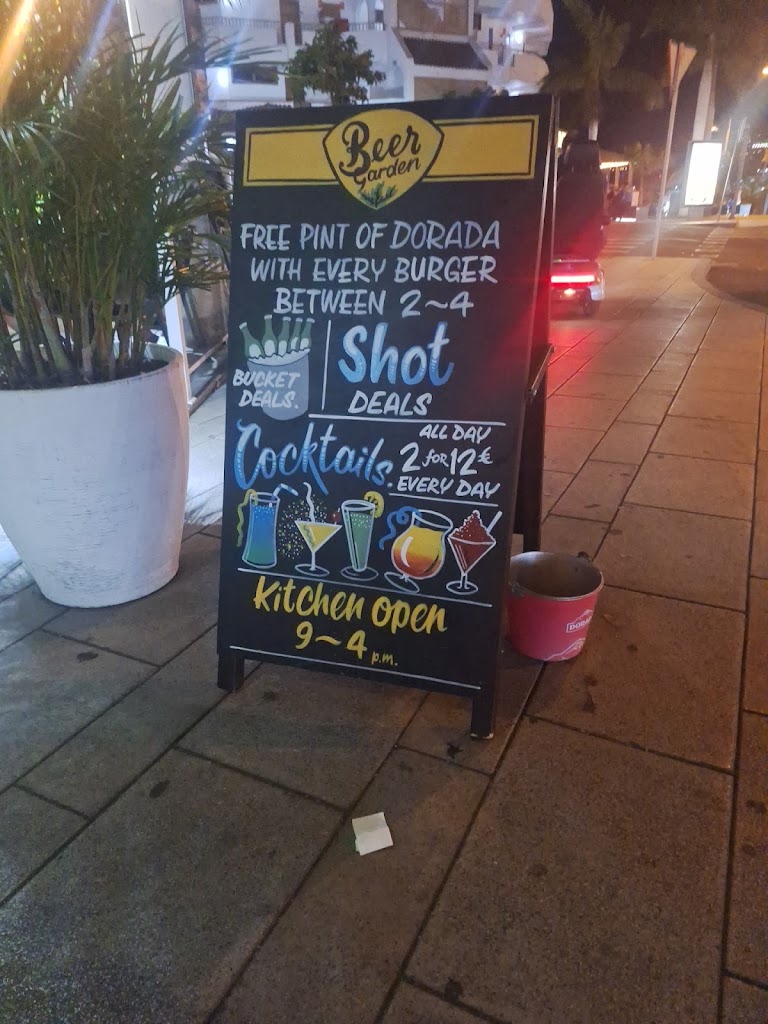 Beer
Garden
FREE PINT OF DORADA
WITH EVERY BURGER
BETWEEN 2~4
BUCKET
DEALS.
Shot
DEALS
Cocktails.
ALL DAY
2 for 12€
EVERY DAY
Kitchen open
9~4 p.m.
DORADA